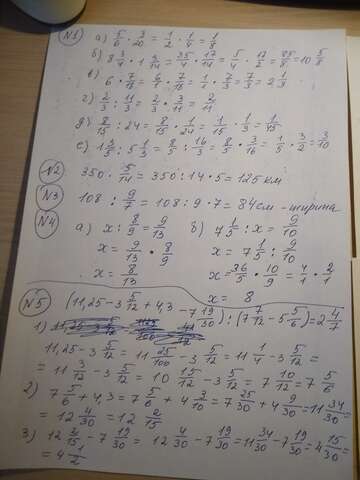 №1 а) 5/6 · 3/20 = 1/2 · 1/4 = 1/8
б) 8 3/4 · 1 3/14 = 35/4 · 17/14 = 5/4 · 17/2 = 85/8 = 10 5/8
в) 6 · 7/15 = 6/1 · 7/15 = 1/1 · 7/3 = 7/3 = 2 1/3
г) 2/3 : 11/3 = 2/3 · 3/11 = 2/11
д) 8/15 : 24 = 8/15 · 1/24 = 1/15 · 1/3 = 1/45
е) 1 3/5 : 5 1/3 = 8/5 : 16/3 = 8/5 · 3/16 = 1/5 · 3/2 = 3/10
№2 350 · 5/14 = 350 : 14 · 5 = 125 км
№3 108 : 9/7 = 108 : 9 · 7 = 84 см - ширина
№4 а) x : 8/9 = 9/13 б) 7 1/5 : x = 9/10
x = 9/13 · 8/9 x = 7 1/5 : 9/10
x = 8/13 x = 36/5 · 10/9 = 4/1 · 2/1
x = 8
№5 (11,25 - 3 5/12 + 4,3 - 7 19/30) : (7 7/12 - 5 5/6) = 2 4/7
1)
11,25 - 3 5/12 = 11 25/100 - 3 5/12 = 11 1/4 - 3 5/12 =
= 11 3/12 - 3 5/12 = 10 15/12 - 3 5/12 = 7 10/12 = 7 5/6
2) 7 5/6 + 4,3 = 7 5/6 + 4 3/10 = 7 25/30 + 4 9/30 = 11 34/30 =
= 12 4/30 = 12 2/15
3) 12 2/15 - 7 19/30 = 12 4/30 - 7 19/30 = 11 34/30 - 7 19/30 = 4 15/30 =
= 4 1/2